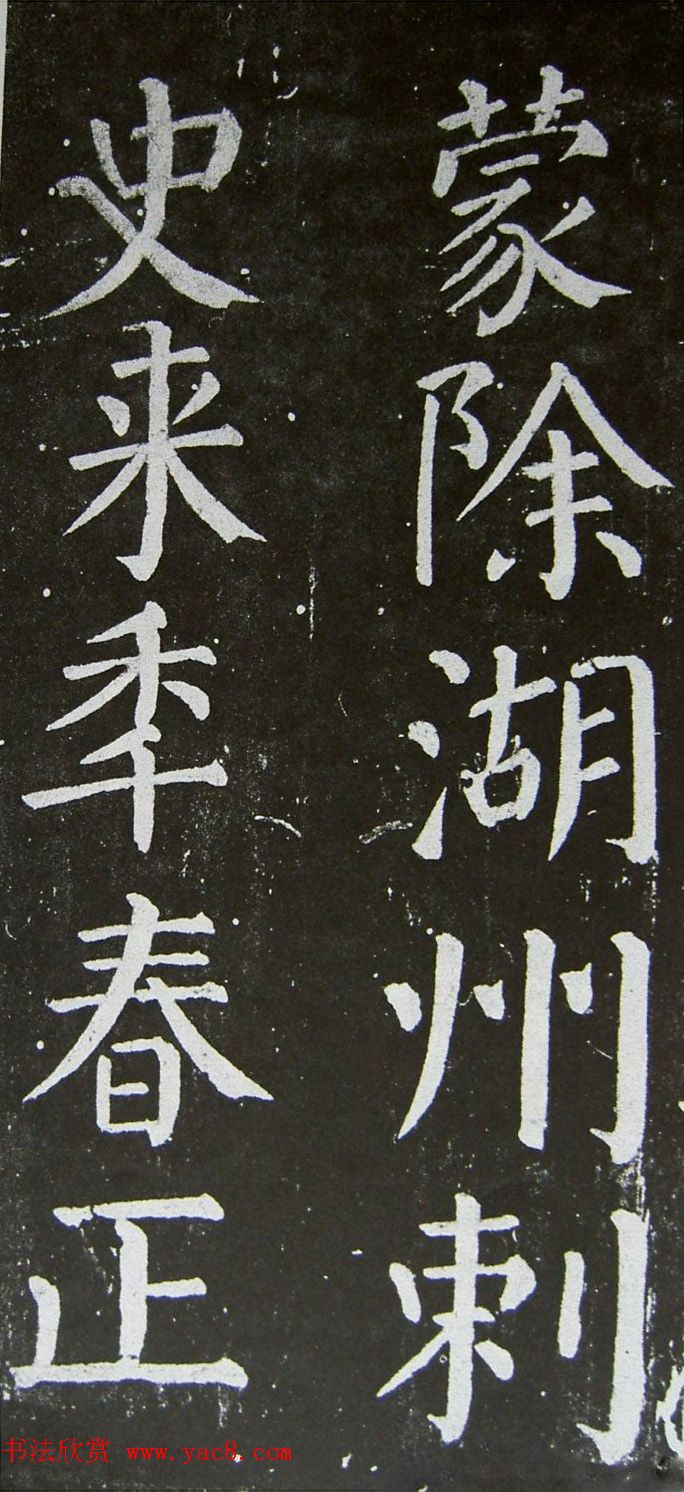 蒙除湖州刺
史来年春正
书法欣赏 www.yac8.com